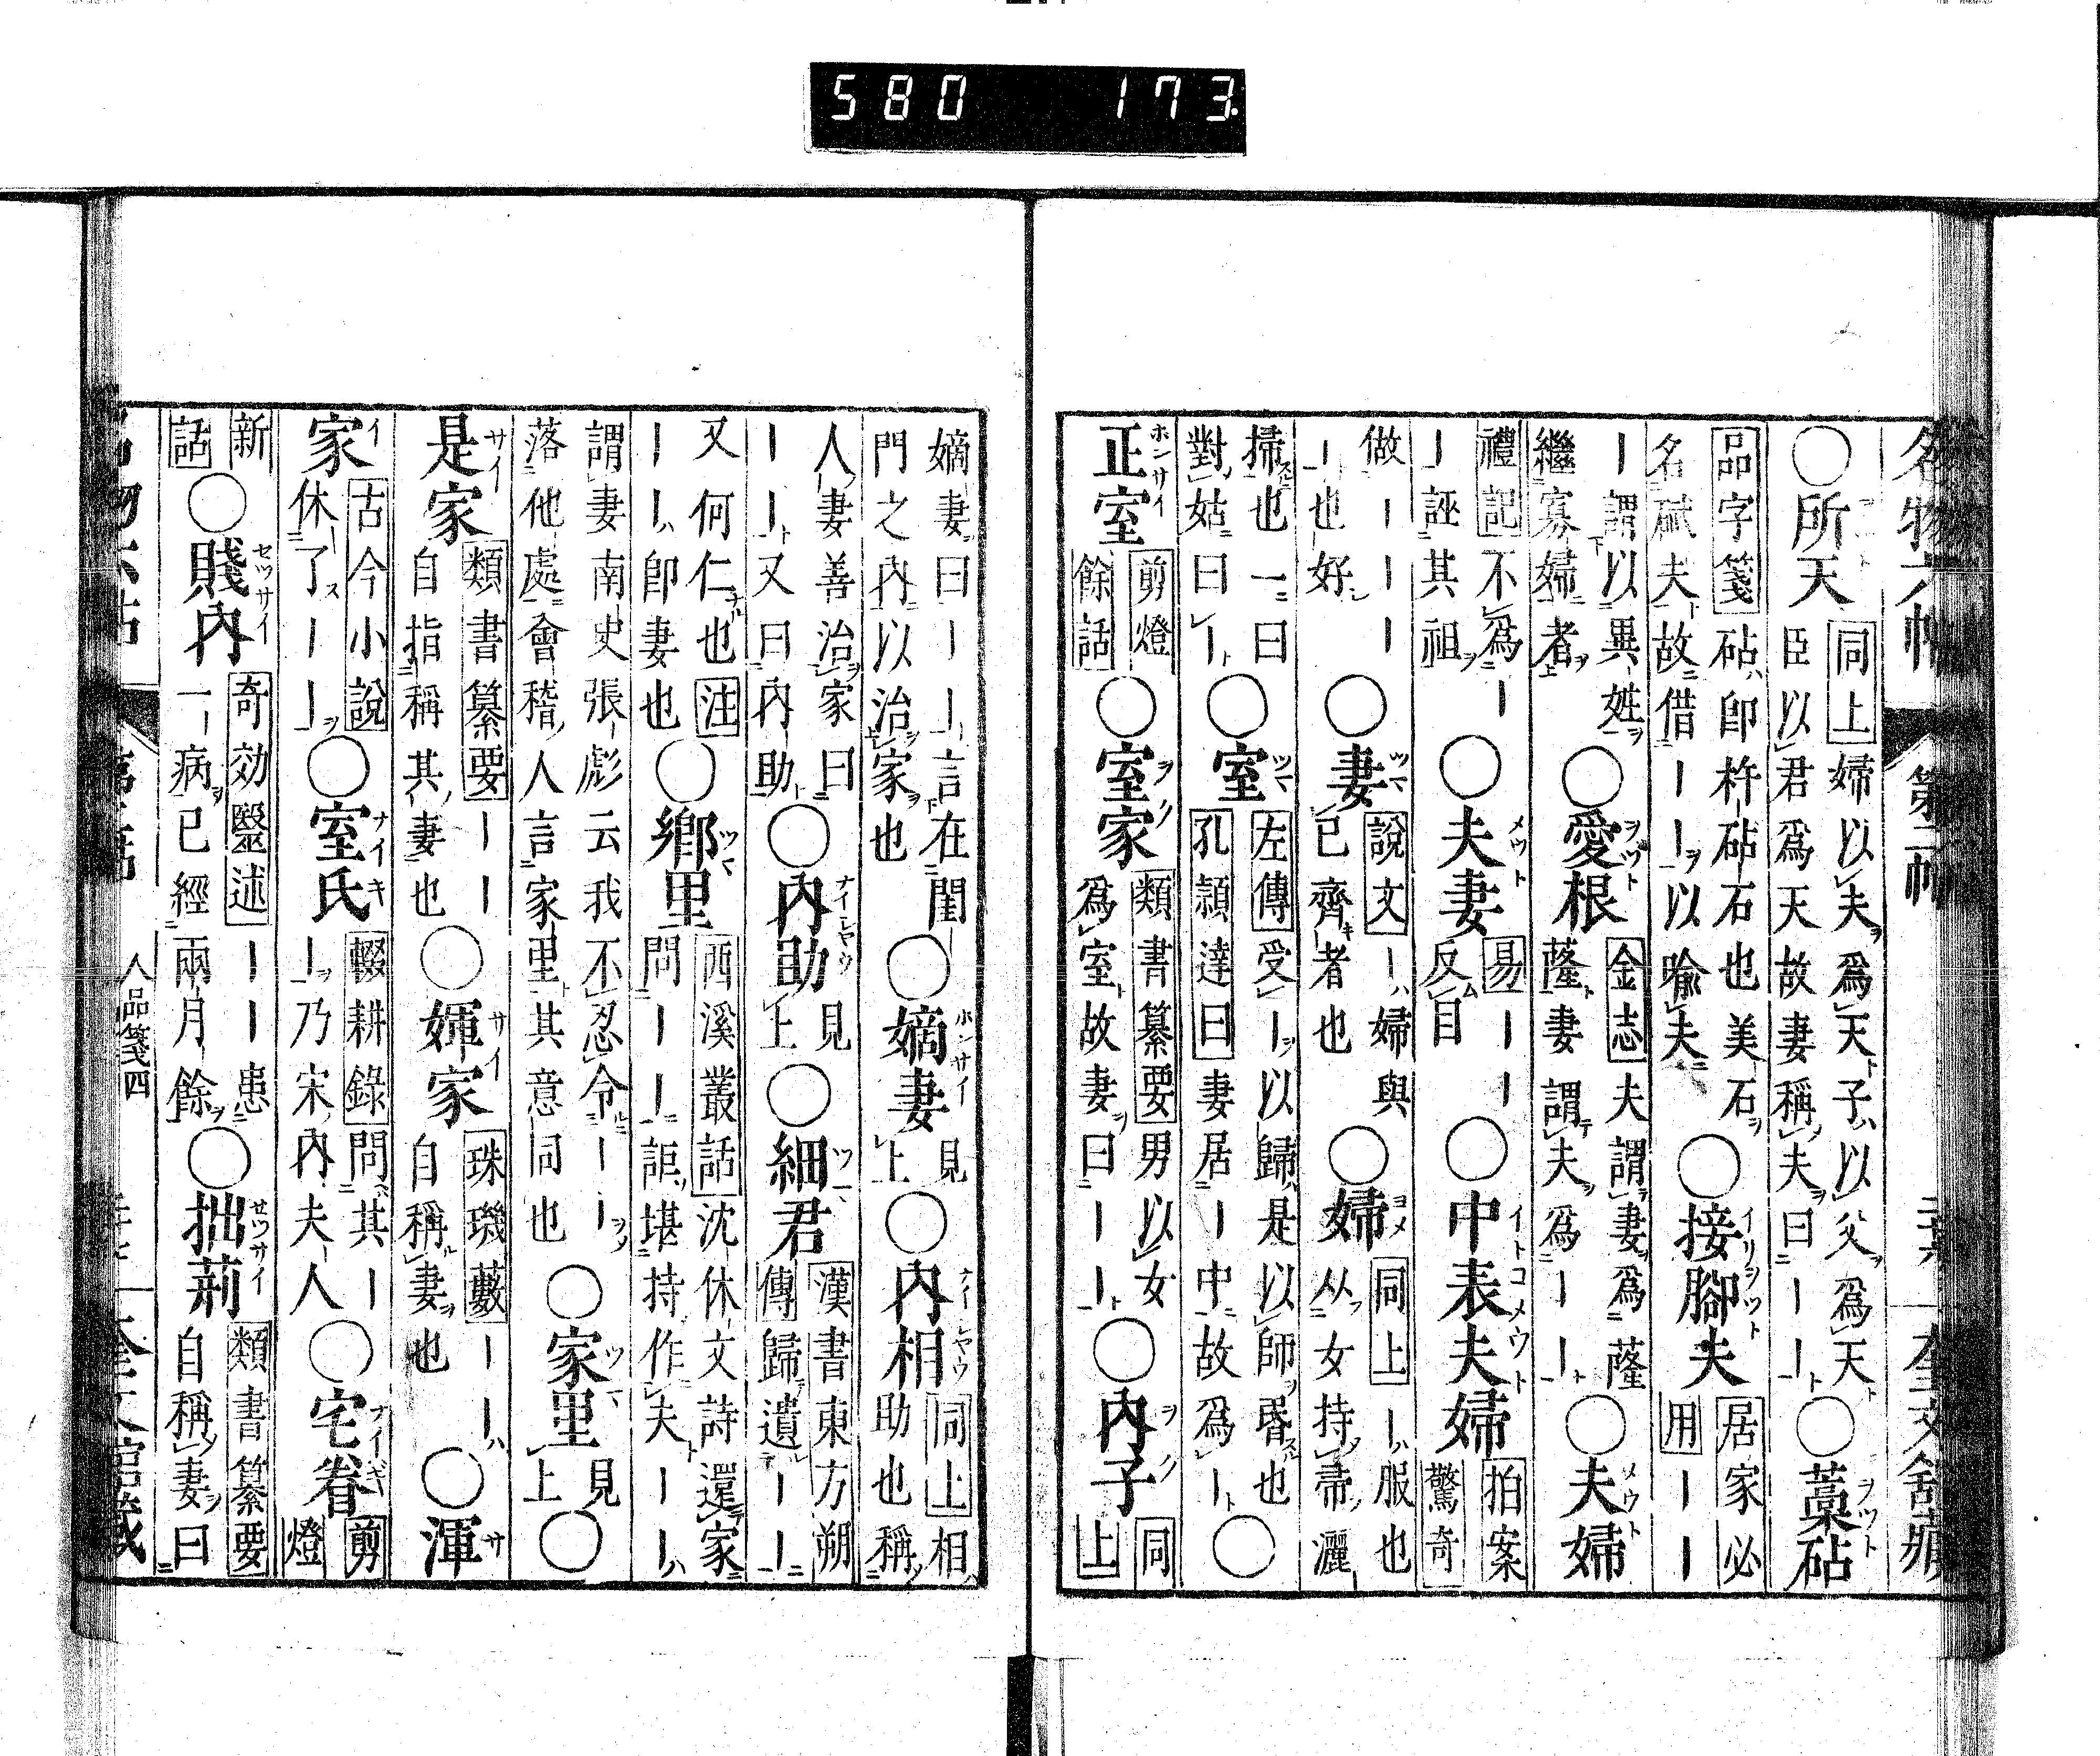 580 173
名物六帖 第二帖 奎文舘藏
○所天 同上 婦以夫爲天子以父爲天臣以君爲天故妻稱夫曰｜｜ ○藁砧
品字箋 砧卽杵砧石也美石名碔夫故借｜｜以喩夫 ○接腳夫 居家必用 ｜｜
｜謂以異姓繼寡婦者 ○愛根 金志 夫謂妻爲薩薩妻謂夫爲｜｜ ○夫婦
禮記 不爲｜｜誣其祖 ○夫妻 易 ｜｜反目 ○中表夫婦 拍案驚奇
做｜｜｜｜也好 ○妻 說文 ｜婦與已齊者也 ○婦 同上 ｜服也从女持帚灑
掃也一曰對姑曰｜ ○室 左傳 受｜以歸是以師昏也 孔頴達曰 妻居｜中故爲｜ ○
正室 剪燈餘話 ○室家 類書纂要 男以女爲室故妻曰｜｜ ○內子 同上
嫡妻曰｜｜言在閨門之內以治家也 ○嫡妻 見上 ○內相 同上 相助也稱
人妻善治家曰｜｜又曰內助 ○內助 見上 ○細君 漢書東方朔傳 歸遺｜｜
又何仁也 注 ｜｜卽妻也 ○鄉里 西溪叢話 沈休文詩還家問｜｜詎堪持作夫｜｜
謂妻南史張彪云我不忍令｜｜落他處會稽人言家里其意同也 ○家里 見上 ○
是家 類書纂要 ｜｜自指稱其妻也 ○媈家 珠璣藪 ｜｜自稱妻也 ○渾
家 古今小說 休了｜｜ ○室氏 輟耕錄 問其｜｜乃宋內夫人 ○宅眷 剪燈
新話 ○賤內 奇効醫述 ｜｜患一病已經兩月餘 ○拙荊 類書纂要 自稱妻曰
人品箋四